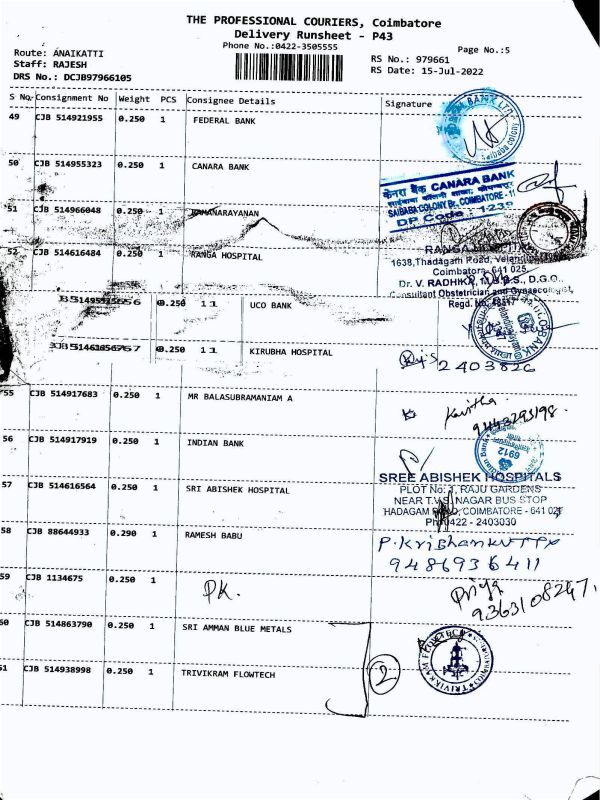 THE PROFESSIONAL COURIERS, Coimbatore
Delivery Runsheet - P43
Phone No.:0422-3505555
Page No.:5
Route: ANAIKATTI
Staff: RAJESH
DRS No.: DCJB97966105
RS No.: 979661
RS Date: 15-Jul-2022
S No. Consignment No Weight PCS Consignee Details Signature
49 CJB 514921955 0.250 1 FEDERAL BANK
BANK LTD
Saibaba colony
50 CJB 514955323 0.250 1 CANARA BANK
केनरा बैंक CANARA BANK
SAIBABA COLONY Br. COIMBATORE - 11
DP Code : 1239
51 CJB 514966048 0.250 1 RAMANARAYANAN
52 CJB 514616484 0.250 1 RANGA HOSPITAL
RANGA HOSPITAL
1638, Thadagam Road,
Coimbatore- 641 025.
Dr. V. RADHIKA, M.B.B.S., D.G.O.,
Consultant Obstetrician and Gynaecologist,
Regd. No.
0.250 1 UCO BANK
UCO BANK
0.250 1 KIRUBHA HOSPITAL
2403826
55 CJB 514917683 0.250 1 MR BALASUBRAMANIAM A
Kavitha
9443293198.
56 CJB 514917919 0.250 1 INDIAN BANK
Indian Bank
6912
57 CJB 514616564 0.250 1 SRI ABISHEK HOSPITAL
SREE ABISHEK HOSPITALS
PLOT No: 1, RAJU GARDENS
NEAR T.V.S. NAGAR BUS STOP
HADAGAM ROAD, COIMBATORE - 641 025
Ph: 0422 - 2403030
58 CJB 88644933 0.290 1 RAMESH BABU
9486936411
59 CJB 1134675 0.250 1
PK.
Priya
9363108247.
60 CJB 514863790 0.250 1 SRI AMMAN BLUE METALS
61 CJB 514938998 0.250 1 TRIVIKRAM FLOWTECH
2
TRIVIKRAM FLOWTECH